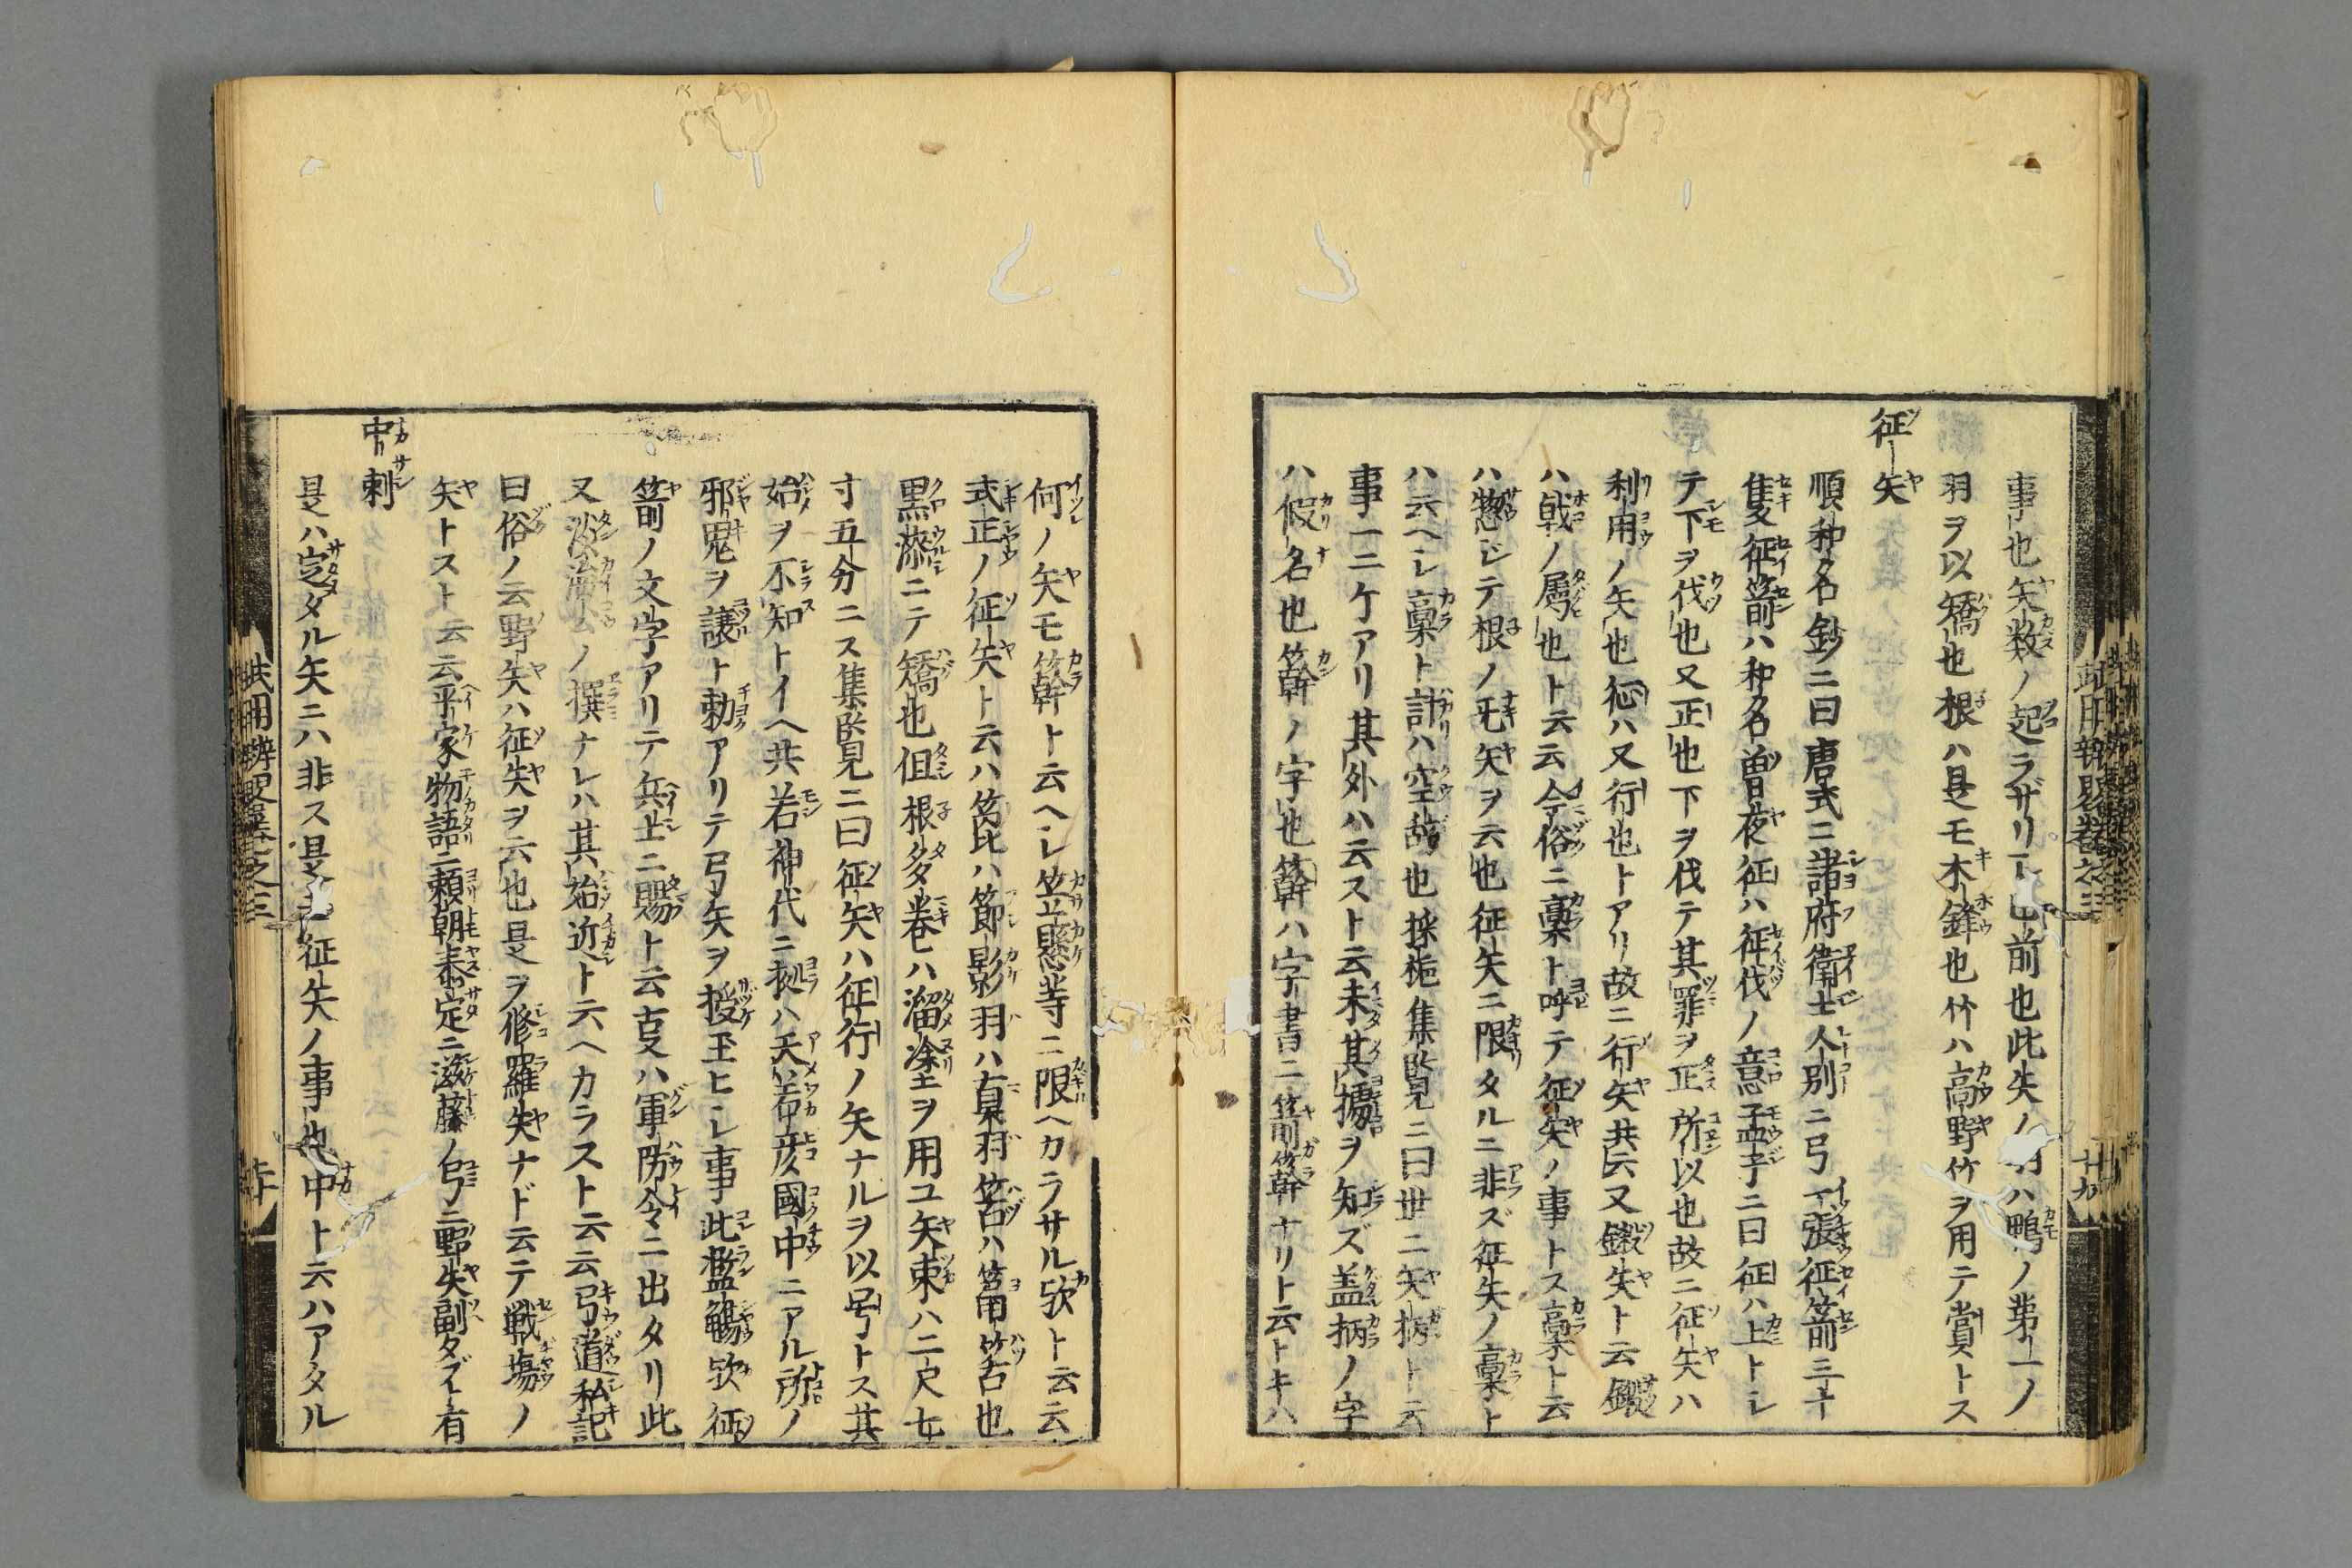 事也矢数ノ起ラザリ下ノ前也此矢ノ羽ハ鴨ノ第一ノ
羽ヲ以矯也根ハ是モ木鋒也竹ハ高野竹ヲ用テ賞トス
征矢
順和名鈔ニ曰唐式ニ諸府衛士人別ニ弓一張征箭三十
隻征箭ハ和名曽夜征ハ征伐ノ意孟子ニ曰征ハ上トシ
テ下ヲ伐也又正也下ヲ伐テ其罪ヲ正所以也故ニ征矢ハ
利用ノ矢也征ハ又行也トアリ故ニ行矢共云又鏃矢ト云鏃
ハ戟ノ属也ト云云今俗ニ稾ト呼テ征矢ノ事トス稾ト云
ハ惣ジテ根ノ矢ヲ云也征矢ニ限タルニ非ズ征矢ノ稾ト
ハ云ヘシ稾ト計ハ空故也採梔集覧ニ曰世ニ矢柄ト云
事一二ケアリ其外ハ云スト云未其據ヲ知ズ盖柄ノ字
ハ假名也簳ノ字也簳ハ字書ニ箭簳ナリト云トキハ
武用辨畧巻之三
十九
何ノ矢モ簳ト云ヘシ笠懸等ニ限ヘカラサル欤ト云云
式正ノ征矢ト云ハ篦ハ節影羽ハ真羽筈ハ筩筈也
黒漆ニテ矯也但根多巻ハ溜塗ヲ用ユ矢束ハ二尺七
寸五分ニス集覧ニ曰征矢ハ征行ノ矢ナルヲ以号トス其
始ヲ不知トイヘ共若神代ニ拠ハ天若彦國中ニアル所ノ
邪鬼ヲ譲ト勅アリテ弓矢ヲ授玉ヒシ事此濫觴欤征
箭ノ文字アリテ兵士ニ賜ト云叓ハ軍防令ニ出タリ此
又淡海公ノ撰ナレハ其始近ト云ヘカラスト云云弓道私記
曰俗ノ云野矢ハ征矢ヲ云也是ヲ修羅矢ナド云テ戦場ノ
矢トスト云云平家物語ニ頼朝泰定ニ滋藤ノ弓ニ野矢副タブト有
中刺
是ハ定タル矢ニハ非ス是モ征矢ノ事也中ト云ハアタル
武用辨畧巻之三
二十